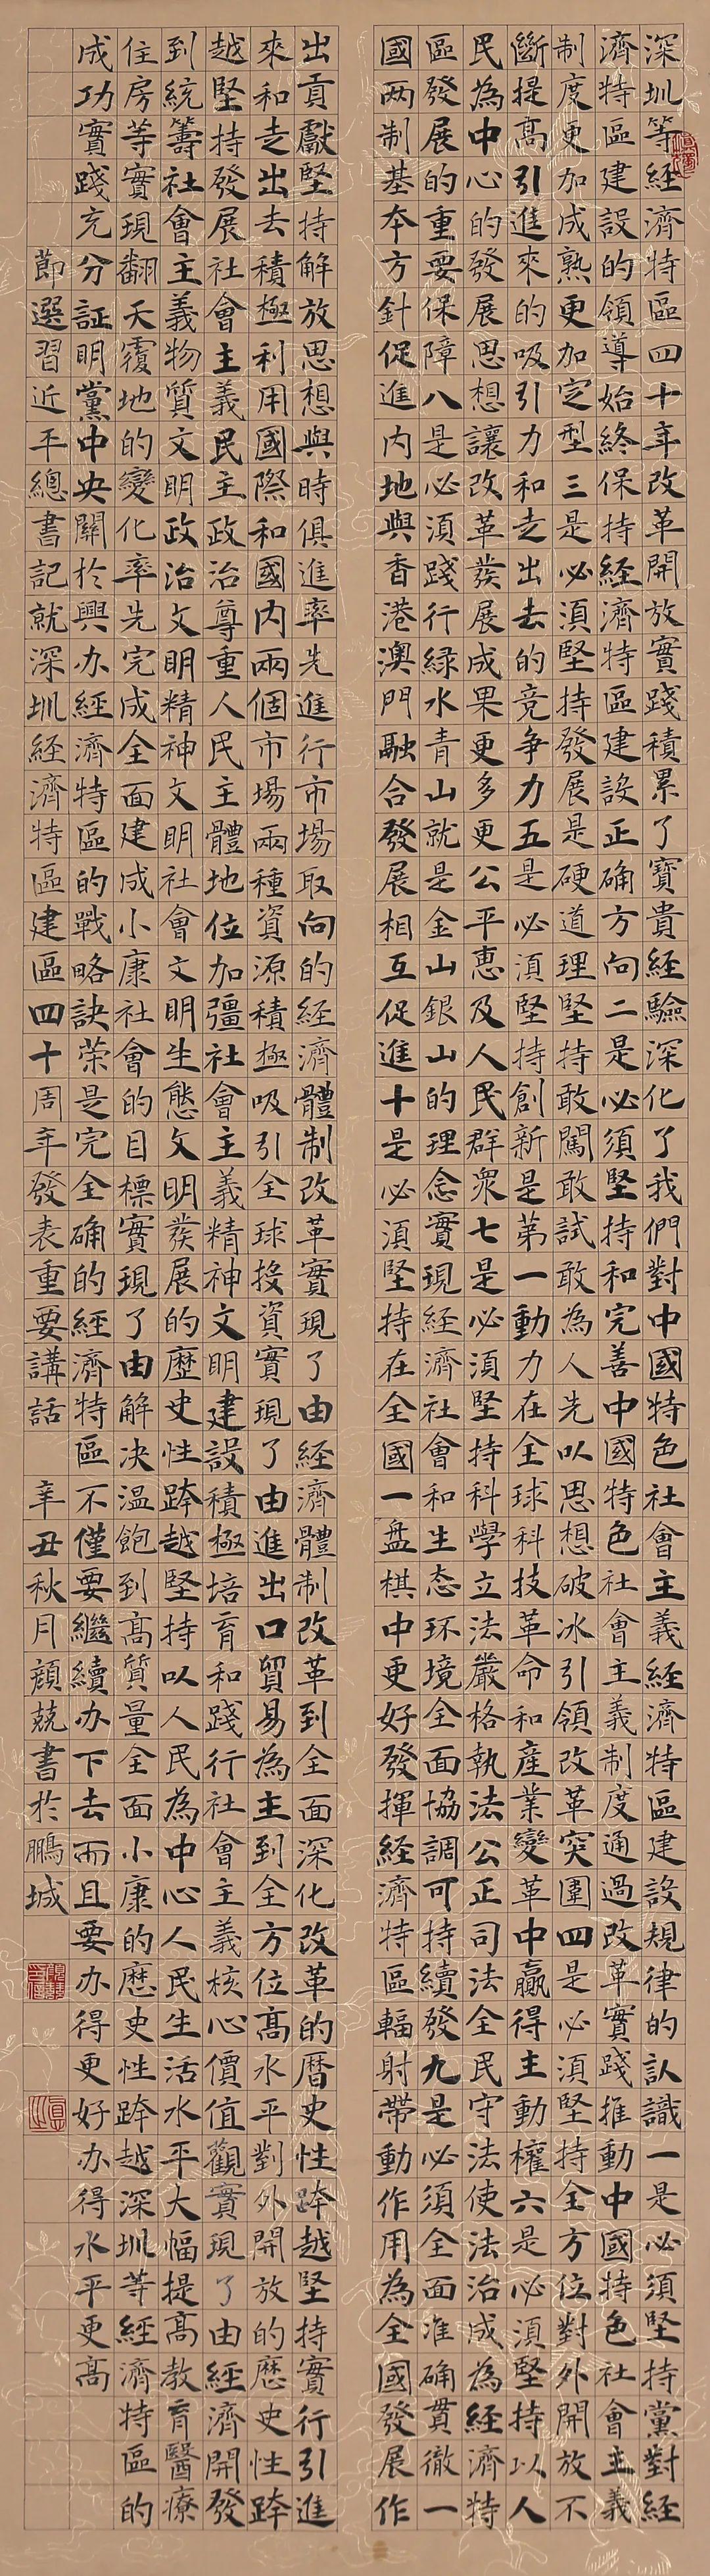 深圳等經濟特區四十年改革開放實踐積累了寶貴經驗深化了我們對中國特色社會主義經濟特區建設規律的認識一是必須堅持黨對經
濟特區建設的領導始終保持經濟特區建設正确方向二是必須堅持和完善中國特色社會主義制度通過改革實踐推動中國特色社會主義
制度更加成熟更加定型三是必須堅持發展是硬道理堅持敢闖敢試敢為人先以思想破冰引領改革突圍四是必須堅持全方位對外開放不
斷提高引進來的吸引力和走出去的竞争力五是必須堅持創新是第一動力在全球科技革命和產業變革中贏得主動權六是必須堅持以人
民為中心的發展思想讓改革發展成果更多更公平惠及人民群衆七是必須堅持科學立法嚴格執法公正司法全民守法使法治成為經濟特
區發展的重要保障八是必須踐行綠水青山就是金山銀山的理念實現經濟社會和生态环境全面協調可持續發九是必須全面准确貫徹一
國两制基本方針促進内地與香港澳門融合發展相互促進十是必須堅持在全國一盘棋中更好發揮經濟特區輻射帶動作用為全國發展作
出貢獻堅持解放思想與時俱進率先進行市場取向的經濟體制改革實現了由經濟體制改革到全面深化改革的曆史性跨越堅持實行引進
來和走出去積極利用國際和國内兩個市場兩種資源積極吸引全球投資實現了由進出口貿易為主到全方位高水平對外開放的歷史性跨
越堅持發展社會主義民主政治尊重人民主體地位加彊社會主義精神文明建設積極培育和踐行社會主義核心價值觀實現了由經濟開發
到統籌社會主義物質文明政治文明精神文明社會文明生態文明發展的歷史性跨越堅持以人民為中心人民生活水平大幅提高教育醫療
住房等實現翻天覆地的變化率先完成全面建成小康社會的目標實現了由解决温飽到高質量全面小康的歷史性跨越深圳等經濟特區的
成功實踐充分証明黨中央關於興办經濟特區的戰略訣荣是完全确的經濟特區不僅要繼續办下去而且要办得更好办得水平更高
節選習近平總書記就深圳經濟特區建區四十周年發表重要講話 辛丑秋月顔兢書於鵬城